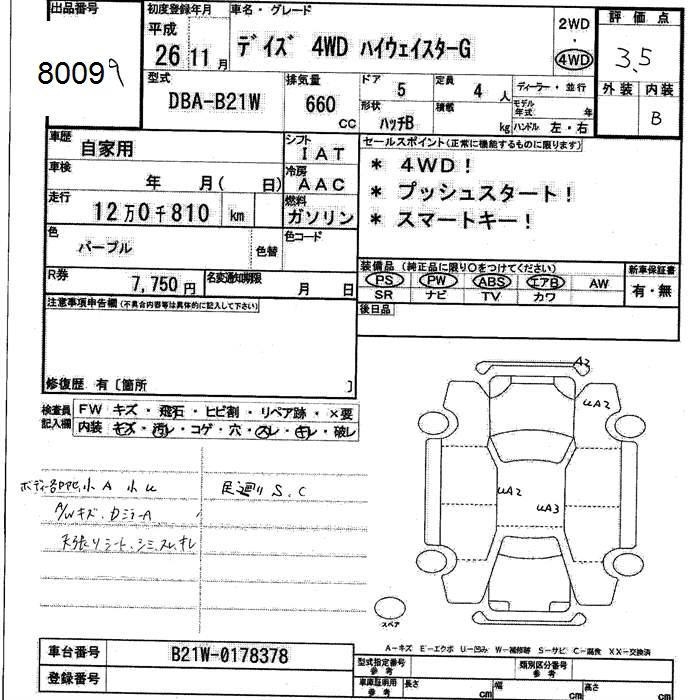 出品番号
80099
初度登録年月
平成
26 11月
車名・グレード
デイズ 4WD ハイウェイスターG
2WD
・
4WD
評価点
3.5
外装 内装
B
型式
DBA-B21W
排気量
660
cc
ドア 5
定員 4 人
形状
ハッチB
積載
kg
ディーラー・並行
モデル年式 年
ハンドル 左・右
車歴
自家用
車検
年 月( 日)
走行
12万0千810 km
色
パープル
色替
色コード
シフト
IAT
冷房
AAC
燃料
ガソリン
セールスポイント(正常に機能するものに限ります)
* 4WD!
* プッシュスタート!
* スマートキー!
R券
7,750円
名変通知期限
月 日
装備品(純正品に限り○をつけてください)
PS PW ABS エアB AW
SR ナビ TV カワ
新車保証書
有・無
後日品
注意事項申告欄(不具合内容等は具体的に記入して下さい)
修復歴 有〔箇所 〕
検査員
記入欄
FW キズ・飛石・ヒビ割・リペア跡・×要
内装 キズ・汚レ・コゲ・穴・スレ・キレ・破レ
小A 小U
S.C
A/Wキズ、DミラーA
天張りシート、シミ、スレ
A2
UA2
UA2
UA3
スペア
A-キズ E-エクボ U-凹み W-補修跡 S-サビ C-腐食 XX-交換済
車台番号
B21W-0178378
登録番号
型式指定番号
参考
類別区分番号
参考
車庫証明用
参考
長さ cm
幅 cm
高さ cm